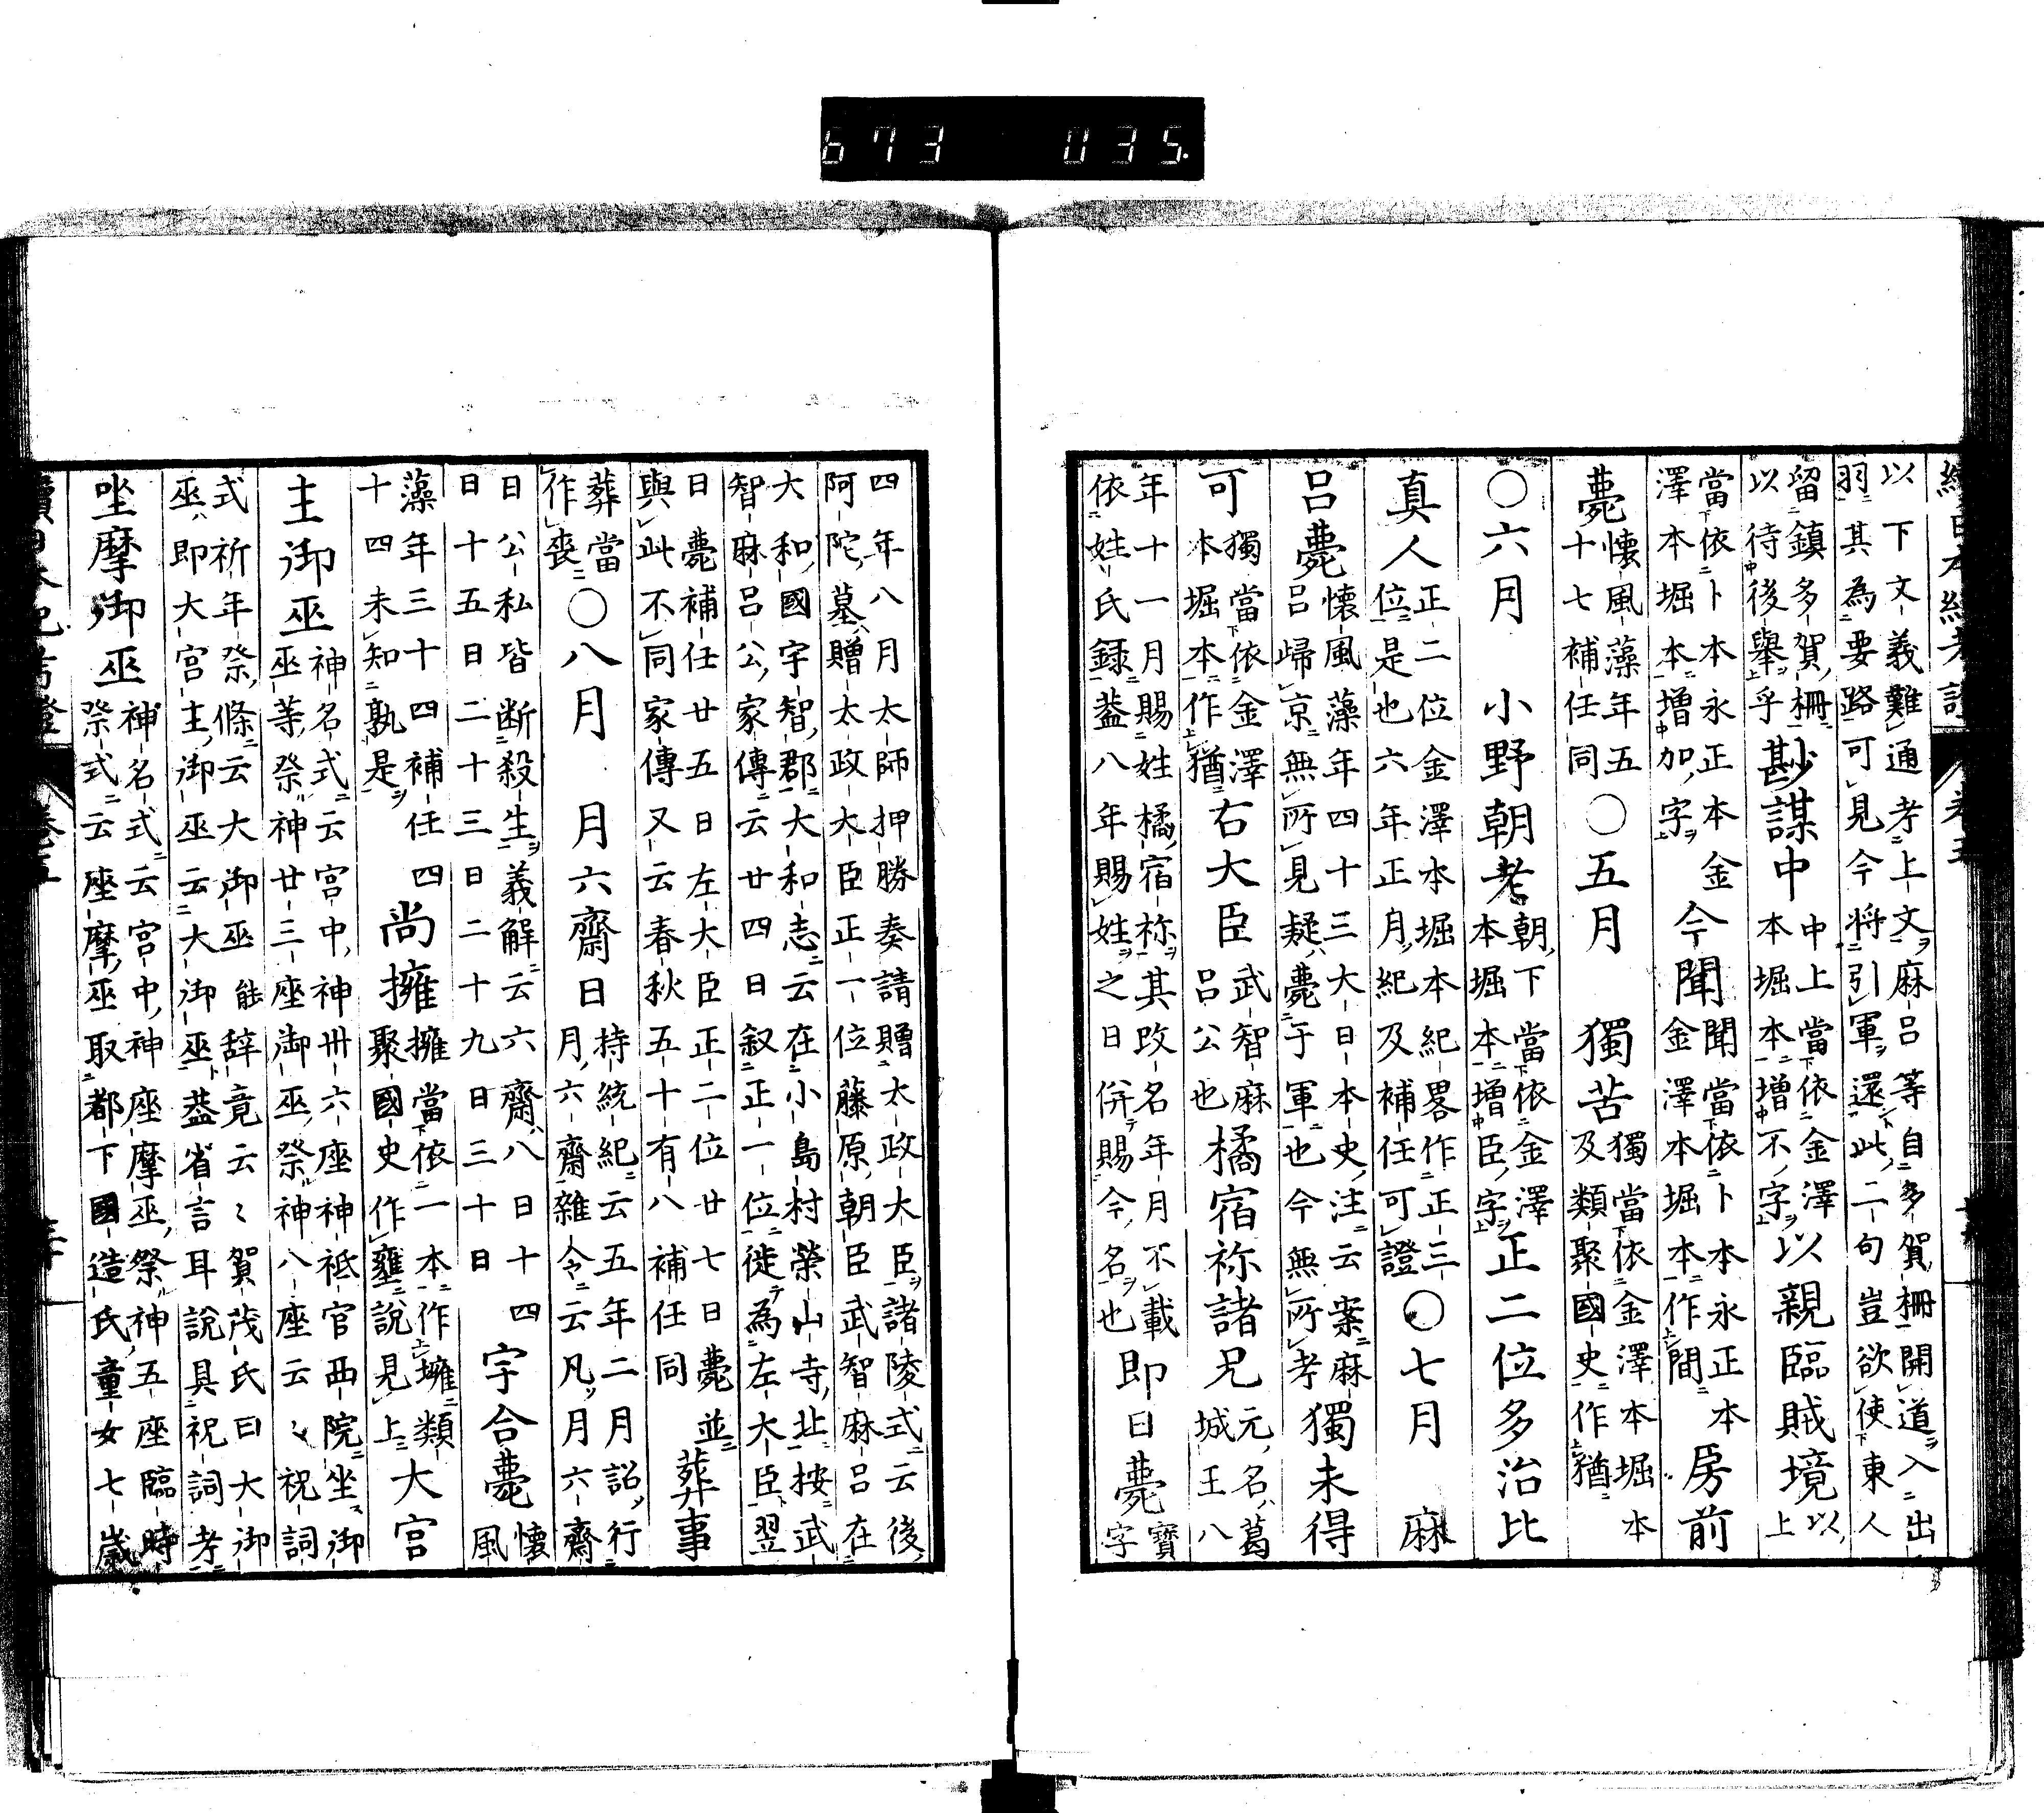 673 035.
以下文義難通考上文麻呂等自多賀柵開道入出
羽其為要路可見今將引軍還此二句豈欲使東人
留鎮多賀柵
以待後舉乎
尠謀中
中上當依金澤
本堀本增不字
以親臨賊境
以上
當依卜本永正本金
澤本堀本增加字
今聞
聞當依卜本永正本
金澤本堀本作間
房前
薨
懷風藻年五
十七補任同
〇五月
獨苦
獨當依金澤本堀本
及類聚國史作猶
〇六月
小野朝老
朝下當依金澤
本堀本增臣字
正二位多治比
真人
正二位金澤本堀本紀畧作正三
位是也六年正月紀及補任可證
〇七月
麻
呂薨
懷風藻年四十三大日本史注云案麻
呂歸京無所見疑薨于軍也今無所考
獨未得
可
獨當依金澤
本堀本作猶
右大臣
武智麻
呂公也
橘宿祢諸兄
元名葛
城王八
年十一月賜姓橘宿祢其改名年月不載
依姓氏録葢八年賜姓之日併賜今名也
即日薨
寶
字
四年八月太師押勝奏請贈太政大臣諸陵式云後
阿陀墓贈太政大臣正一位藤原朝臣武智麻呂在
大和國宇智郡大和志云在小島村榮山寺北按武
智麻呂公家傳云廿四日叙正一位徙為左大臣翌
日薨補任廿五日左大臣正二位廿七日薨並
與此不同家傳又云春秋五十有八補任同
葬事
葬當
作喪
〇八月
月六齋日
持統紀云五年二月詔行
月六齋雜令云凡月六齋
日公私皆断殺生義解云六齋八日十四
日十五日二十三日二十九日三十日
宇合薨
懷
風
藻年三十四補任四
十四未知孰是
尚擁
擁當依一本作壅類
聚國史作壅說見上
大宮
主御巫
神名式云宮中神卅六座神祇官西院坐御
巫等祭神廿三座御巫祭神八座云〻祝詞
式祈年祭條云大御巫能辞竟云〻賀茂氏曰大御
巫即大宮主御巫云大御巫葢省言耳說具祝詞考
坐摩御巫
神名式云宮中神座摩巫祭神五座臨時
祭式云座摩巫取都下國造氏童女七歲